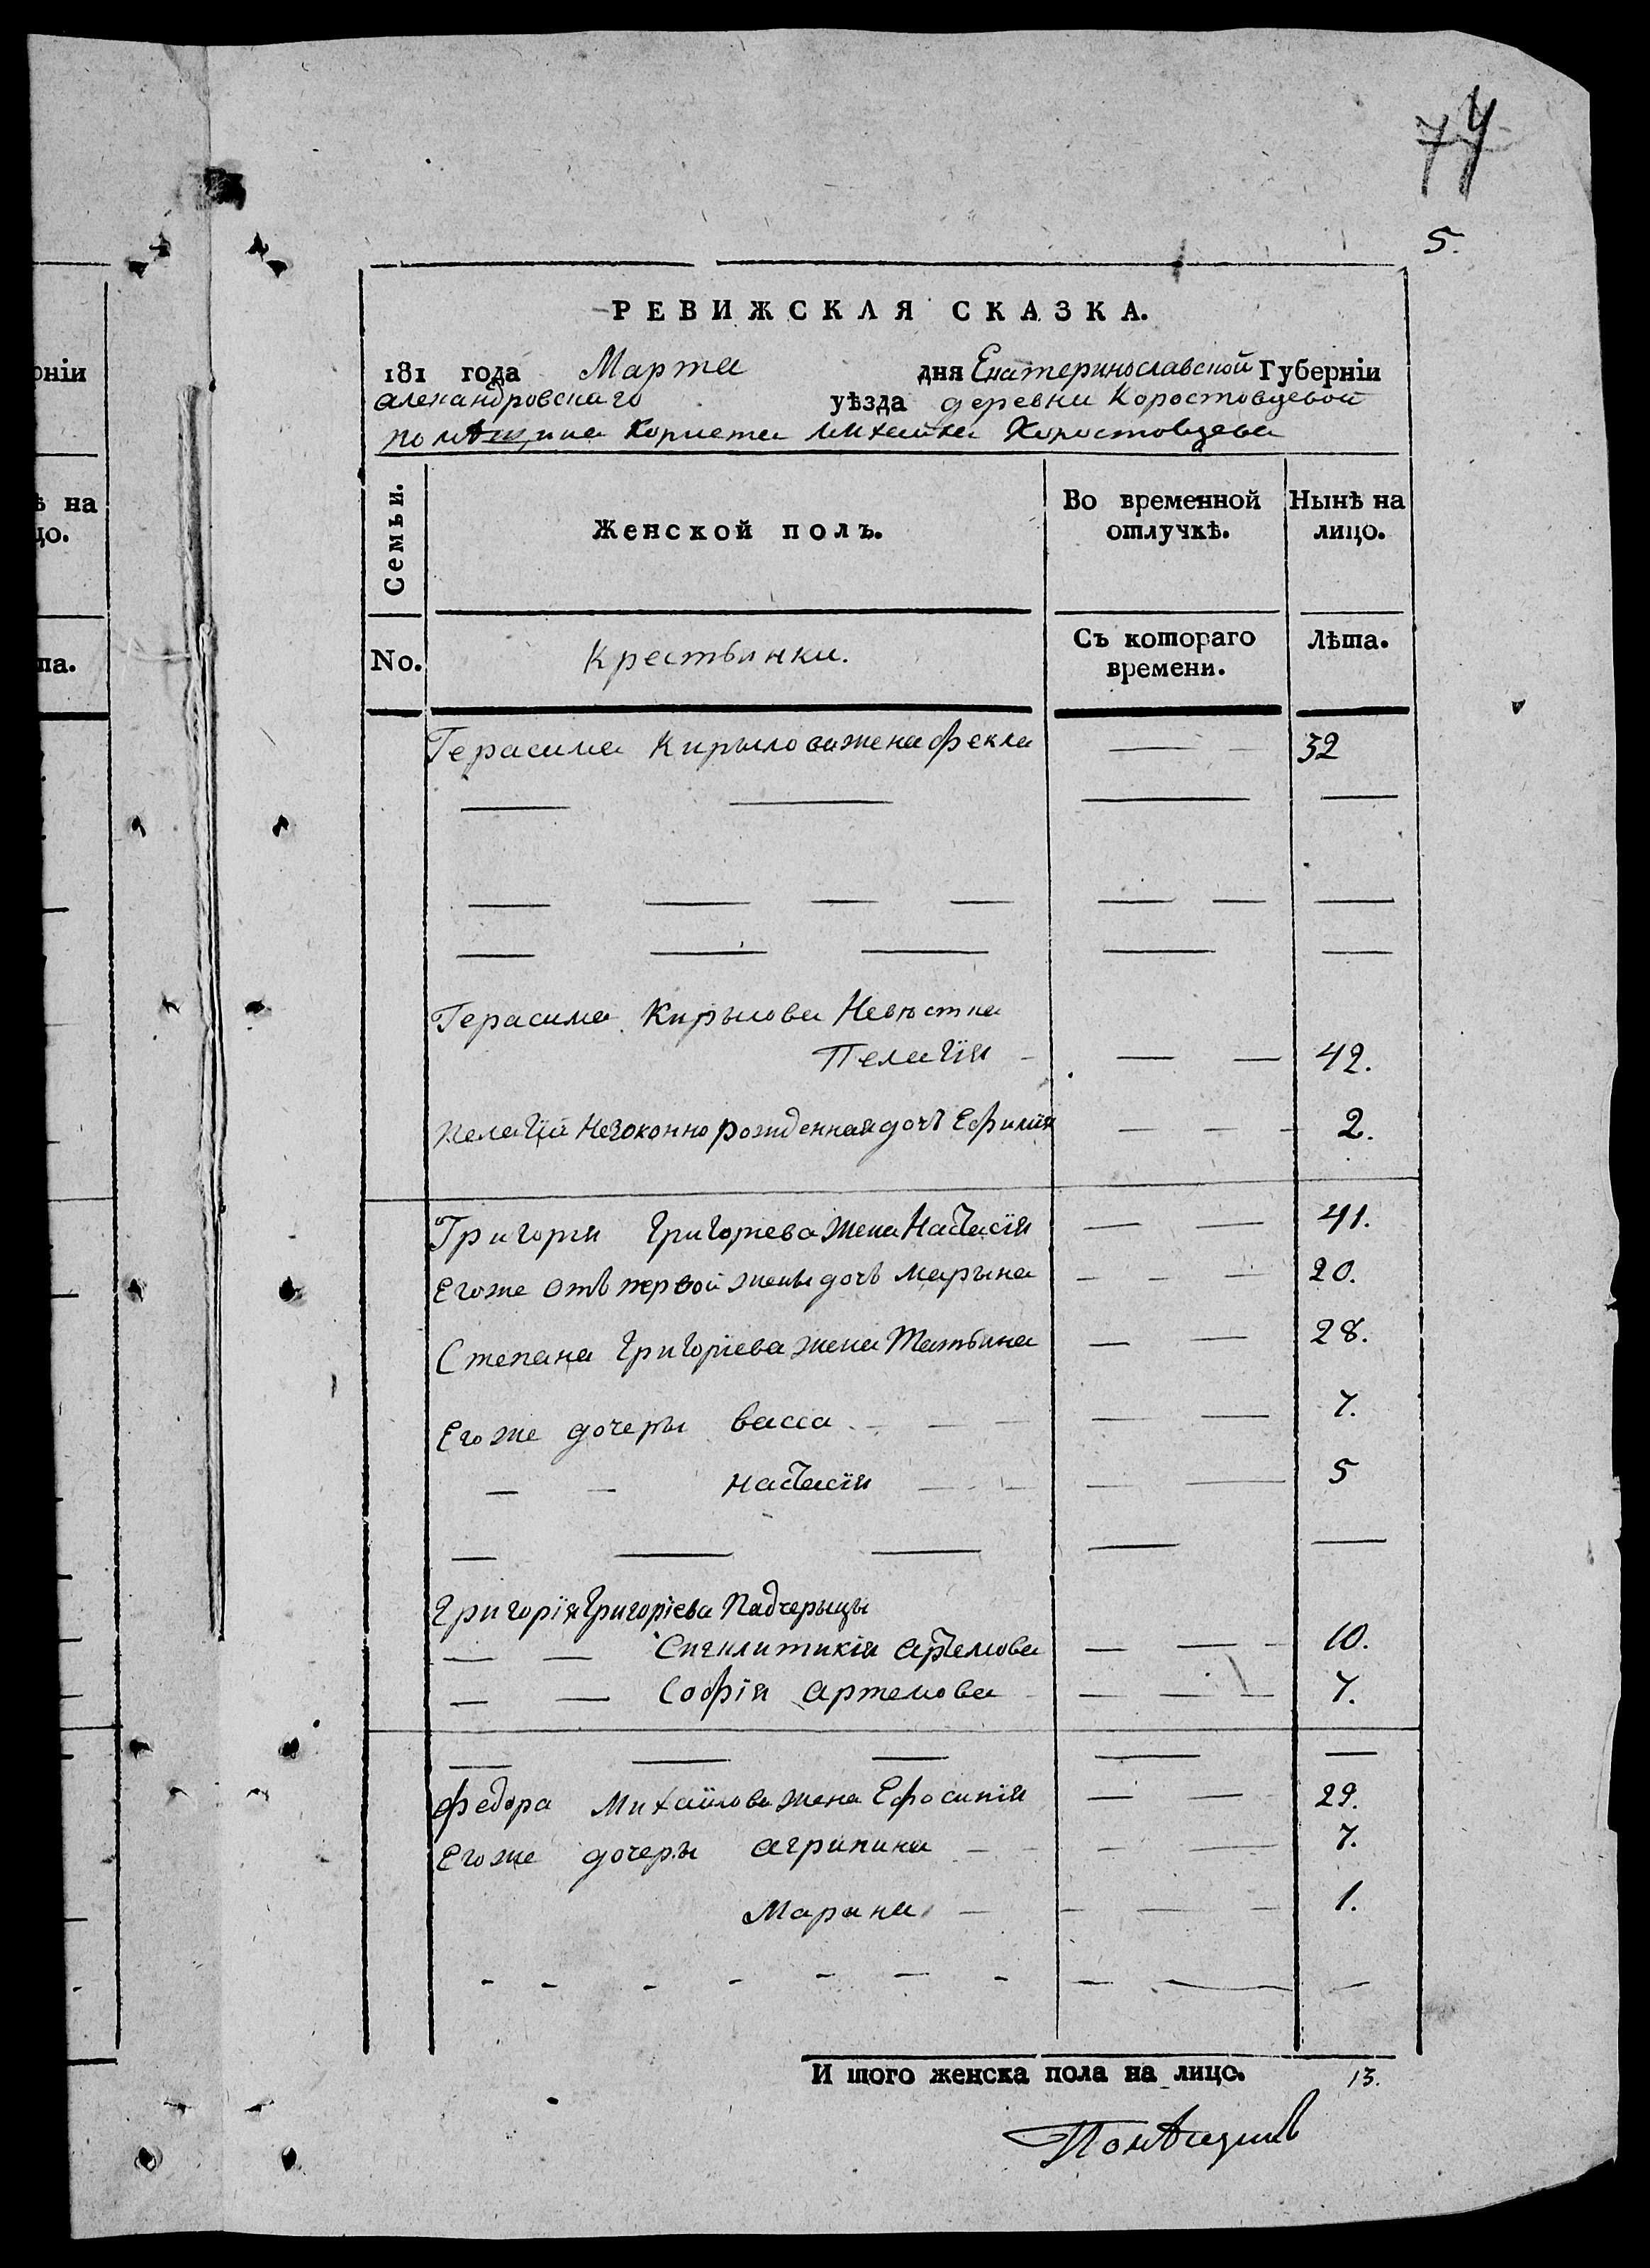 74
5.
РЕВИЖСКАЯ СКАЗКА.
181 года Марта дня Екатеринославской Губерніи
александровскаго уѣзда деревни Коростовцевой
помѣщика Корнета Михайла Коростовцева
рніи
Семьи. Женской полъ. Во временной отлучкѣ. Нынѣ на лицо.
ѣ на
цо.
No. Крестьянки. Съ котораго времени. Лѣта.
та.
Герасима Кирылова жена Фекла — — 32
— — — —
— — — — — — —
— — — — —
Герасима Кирылова Невѣстка
Пелагїя — — — 42.
Пелагїи Незоконно рожденная дочь Ефимїя — — — 2.
Григорія Григорієва жена Настасїя — — 41.
Егоже отъ первой жены дочь Марына — — — 20.
Степана Григоріева жена Татьяна — — 28.
Егоже дочеры васса — — — — — 7.
— — настасїя — — — — — 5
— — — — —
Григорїя Григорїева Падчерыцы
— — Сигклитикія артемова — — — 10.
— — Софія артемова — — — 7.
— — — — —
Федора Михайлова жена Ефосинія — — 29.
Егоже дочеры агрипина — — — — — 7.
Марына — — — — 1.
- - - - - - - — — —
И того женска пола на лицо. 13.